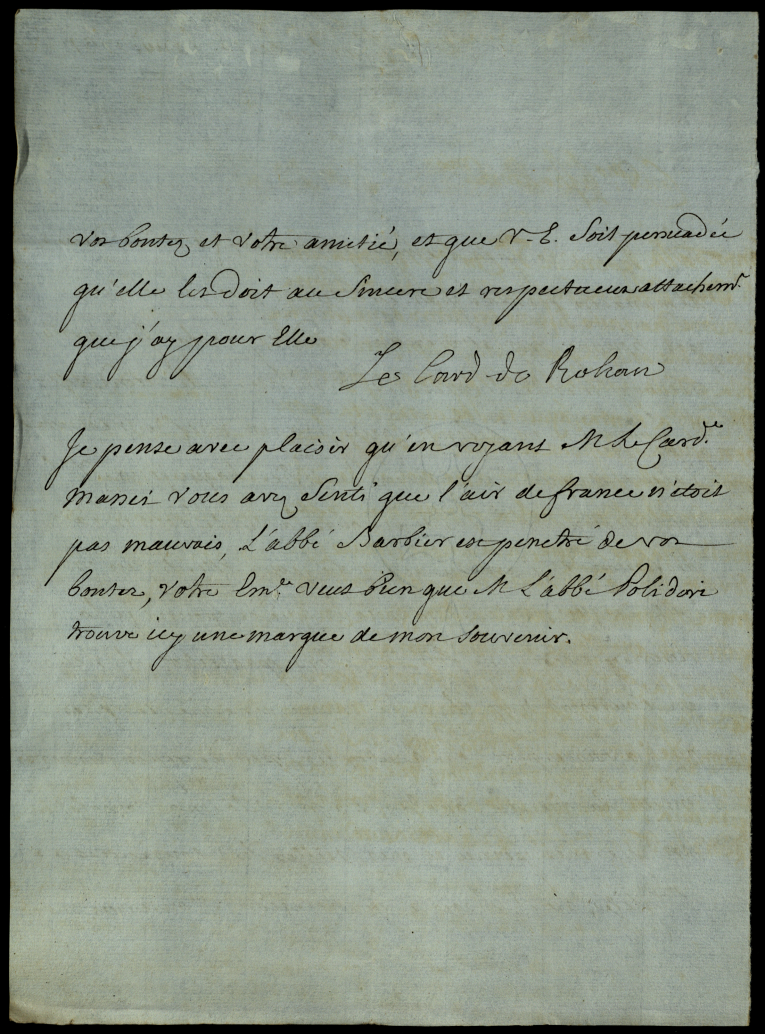 vos bontez et votre amitié, et que V. E. Soit persuadée
qu'elle les doit au Sincere et respectueux attachemt.
que j'ay pour Elle
Le Card de Rohan
Je pense avec plaisir qu'en voyant M Le Card.le
massei vous avez Senti que l'air de france n'etoit
pas mauvais, L'abbé Barbier est penetré de vos
bontez, votre Em.ce veut bien que M L'abbé Polidori
trouve icy une marque de mon souvenir.